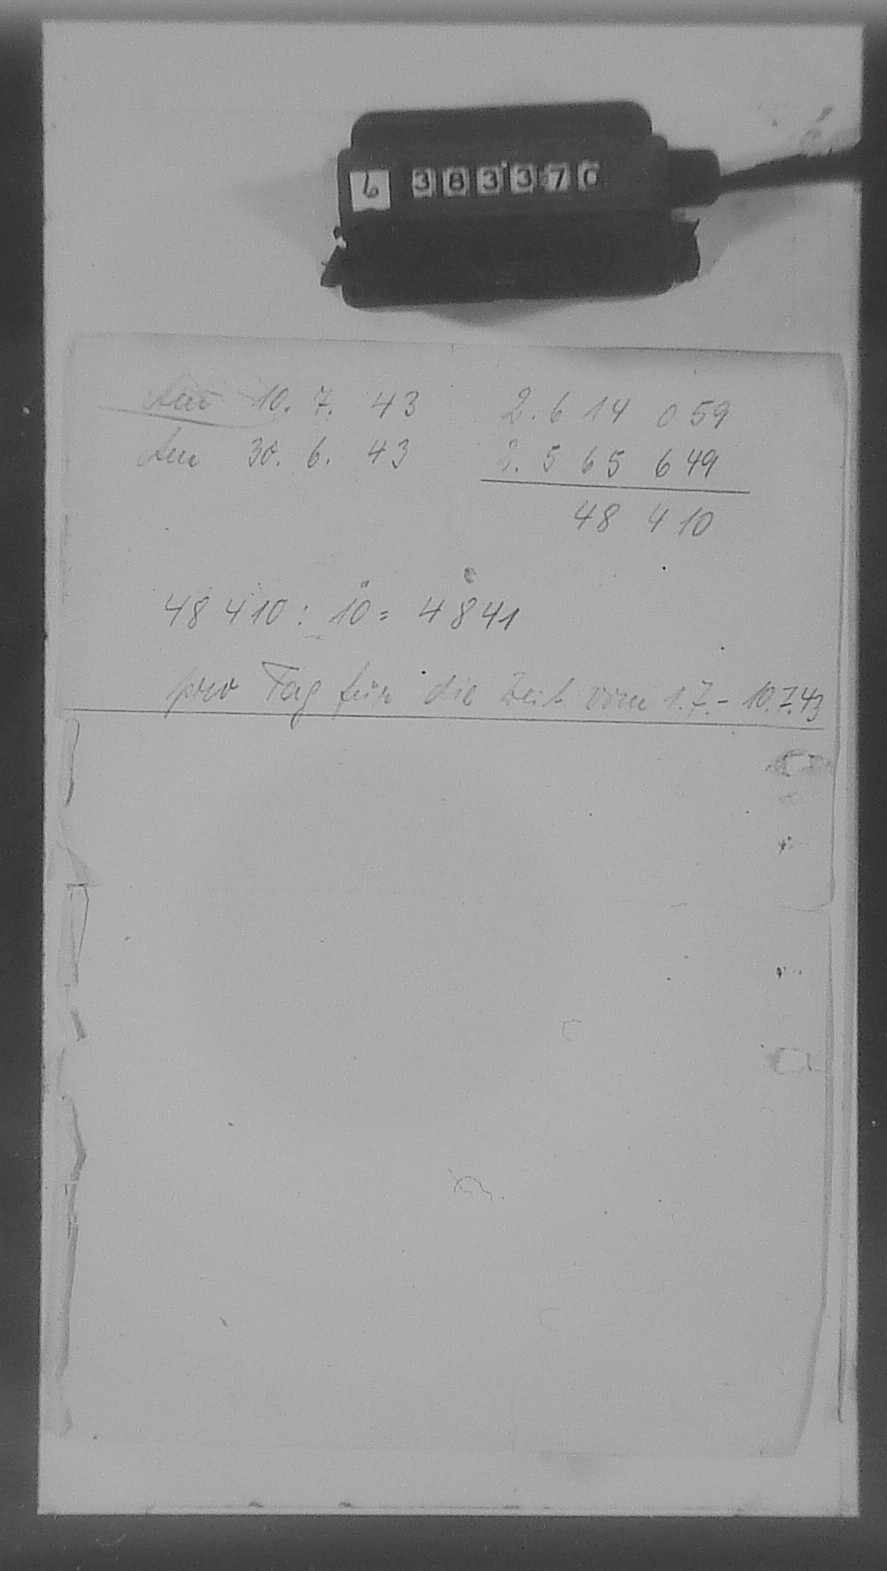 6 383370
Am 10. 7. 43 2.614 059
Am 30. 6. 43 2.565 649
48 410
48 410 : 10 = 4841
pro Tag für die Zeit vom 1.7. - 10.7.43